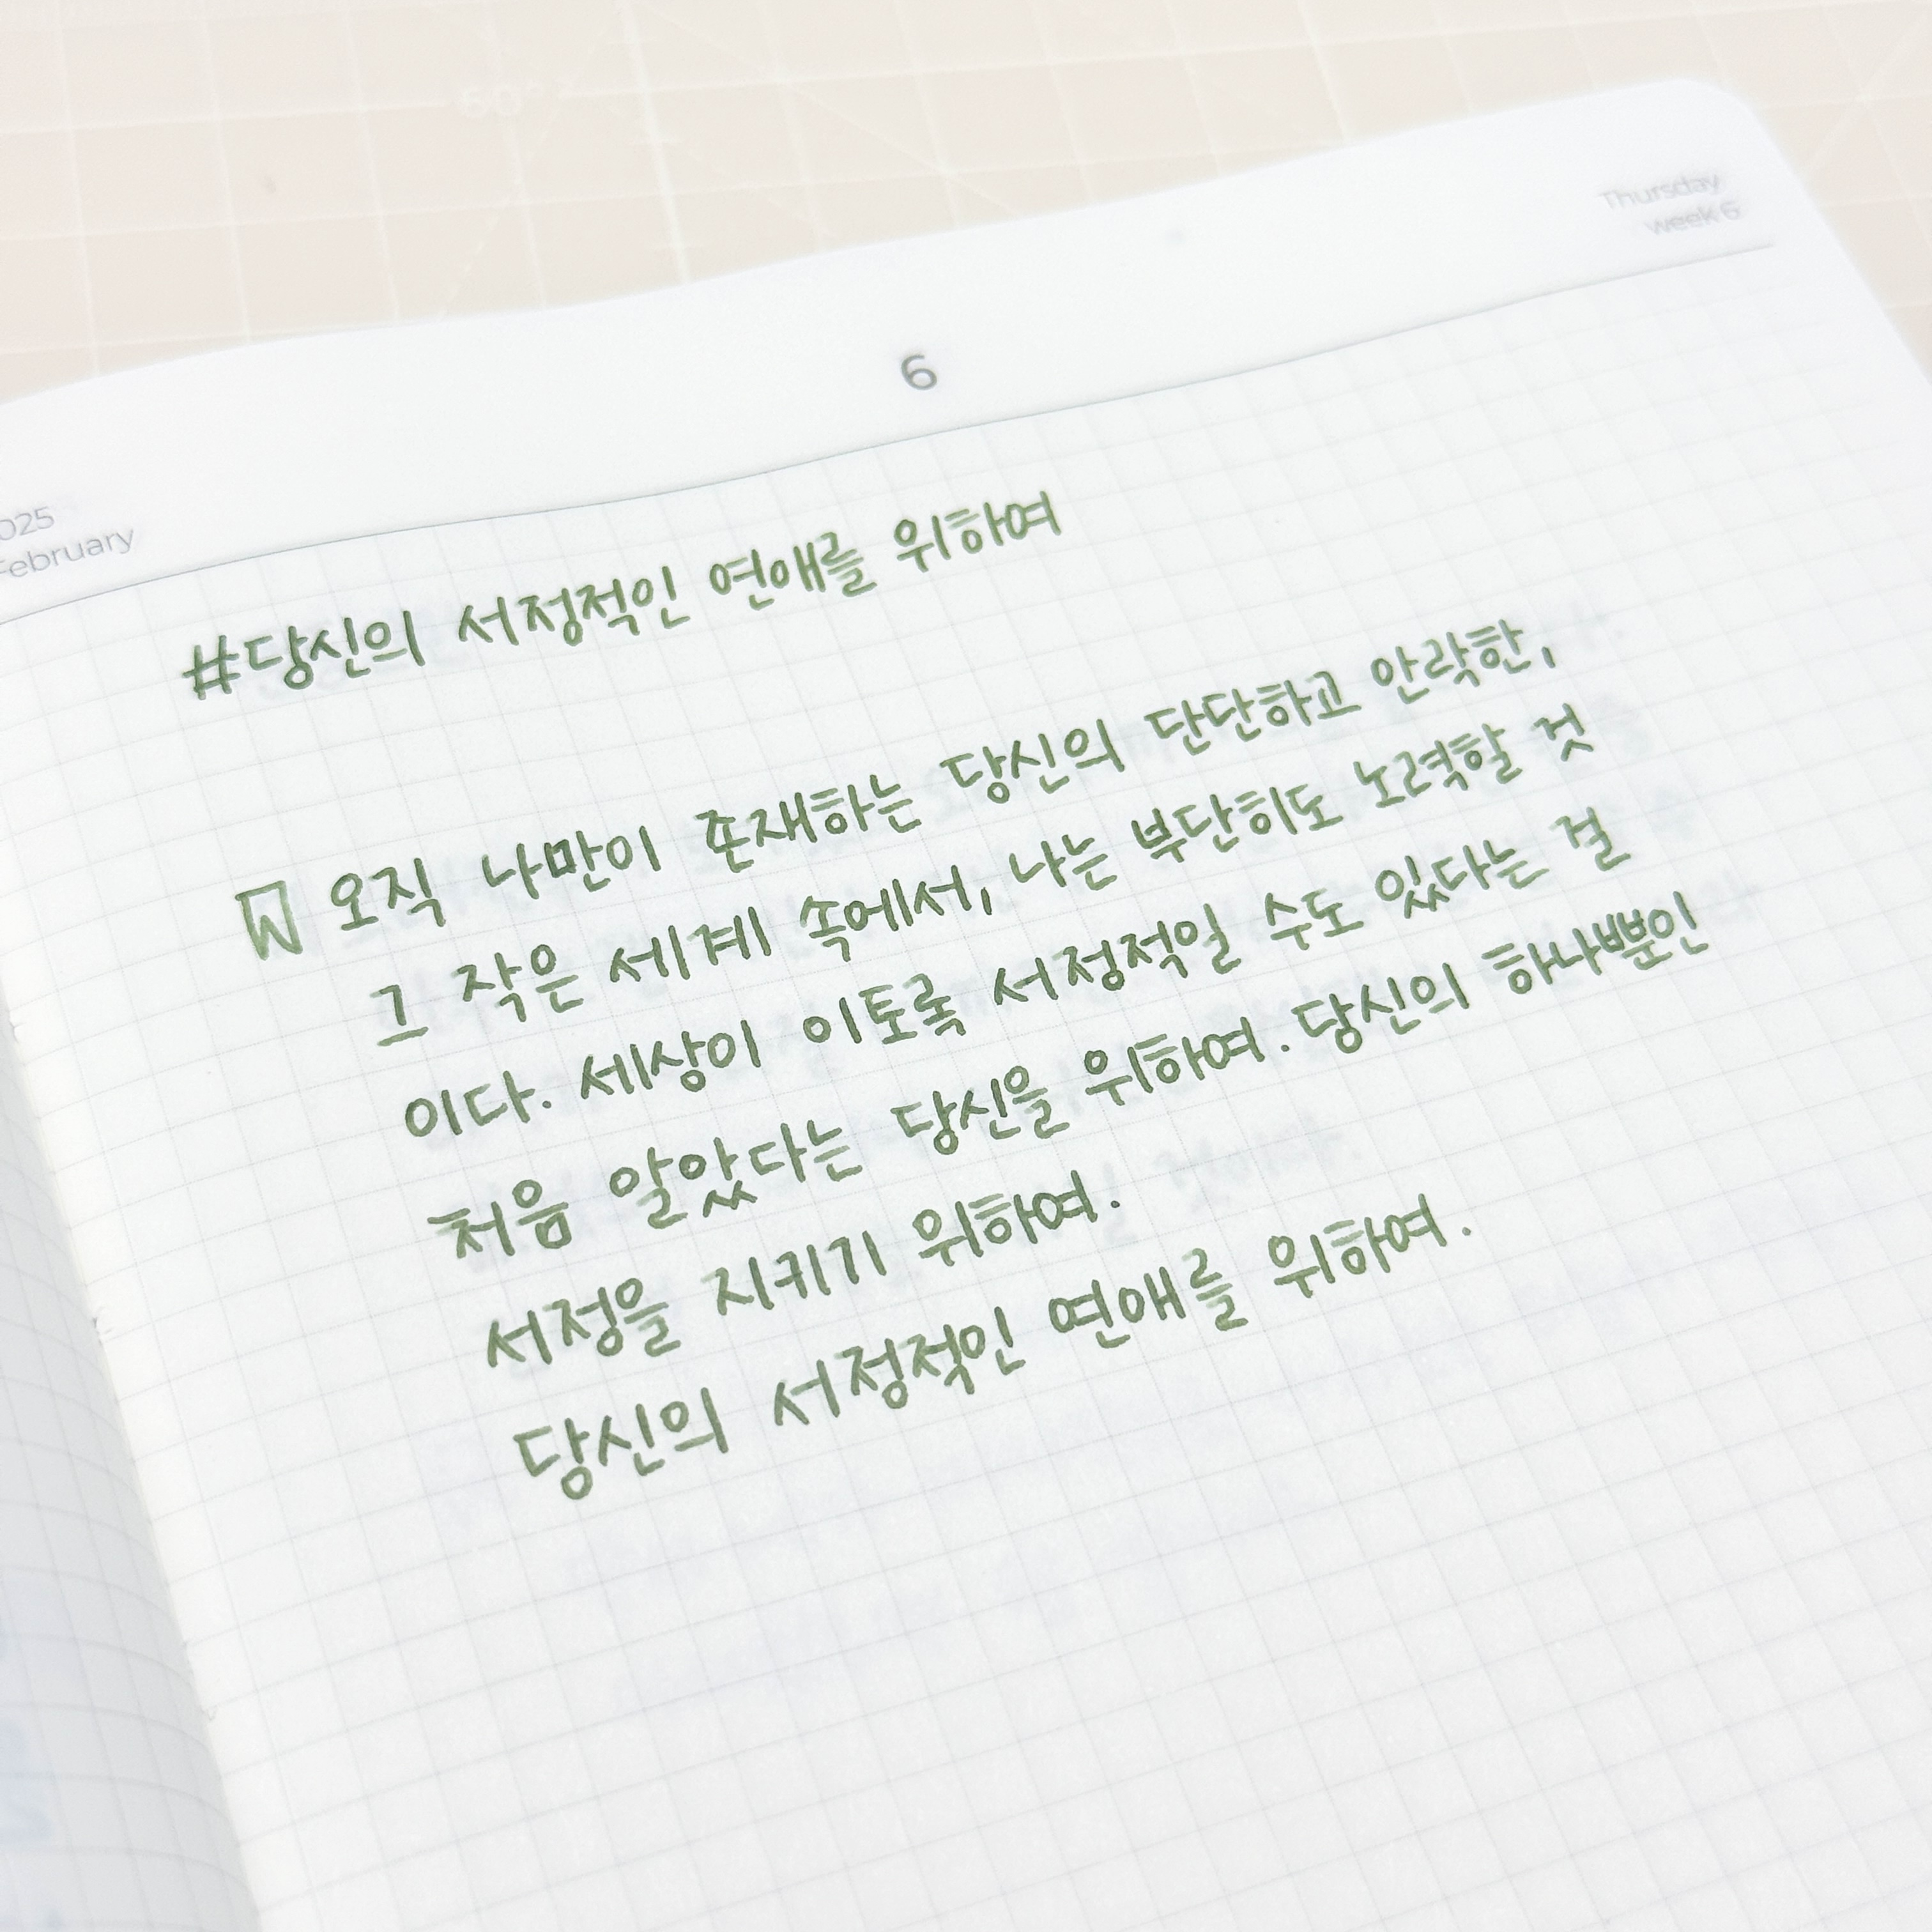 60°
Thursday
week 6
6
025
February
#당신의 서정적인 연애를 위하여
오직 나만이 존재하는 당신의 단단하고 안락한,
그 작은 세계 속에서, 나는 부단히도 노력할 것
이다. 세상이 이토록 서정적일 수도 있다는 걸
처음 알았다는 당신을 위하여. 당신의 하나뿐인
서정을 지키기 위하여.
당신의 서정적인 연애를 위하여.